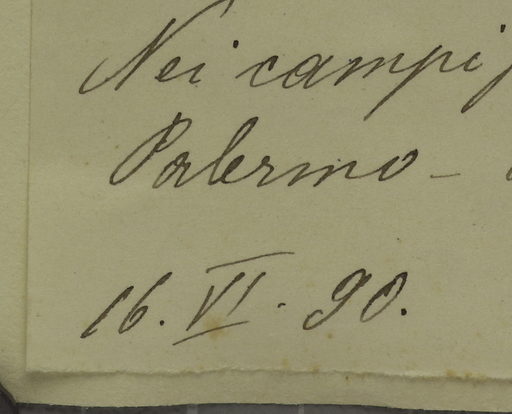 Nei campi
Palermo -
16. VI. 90.